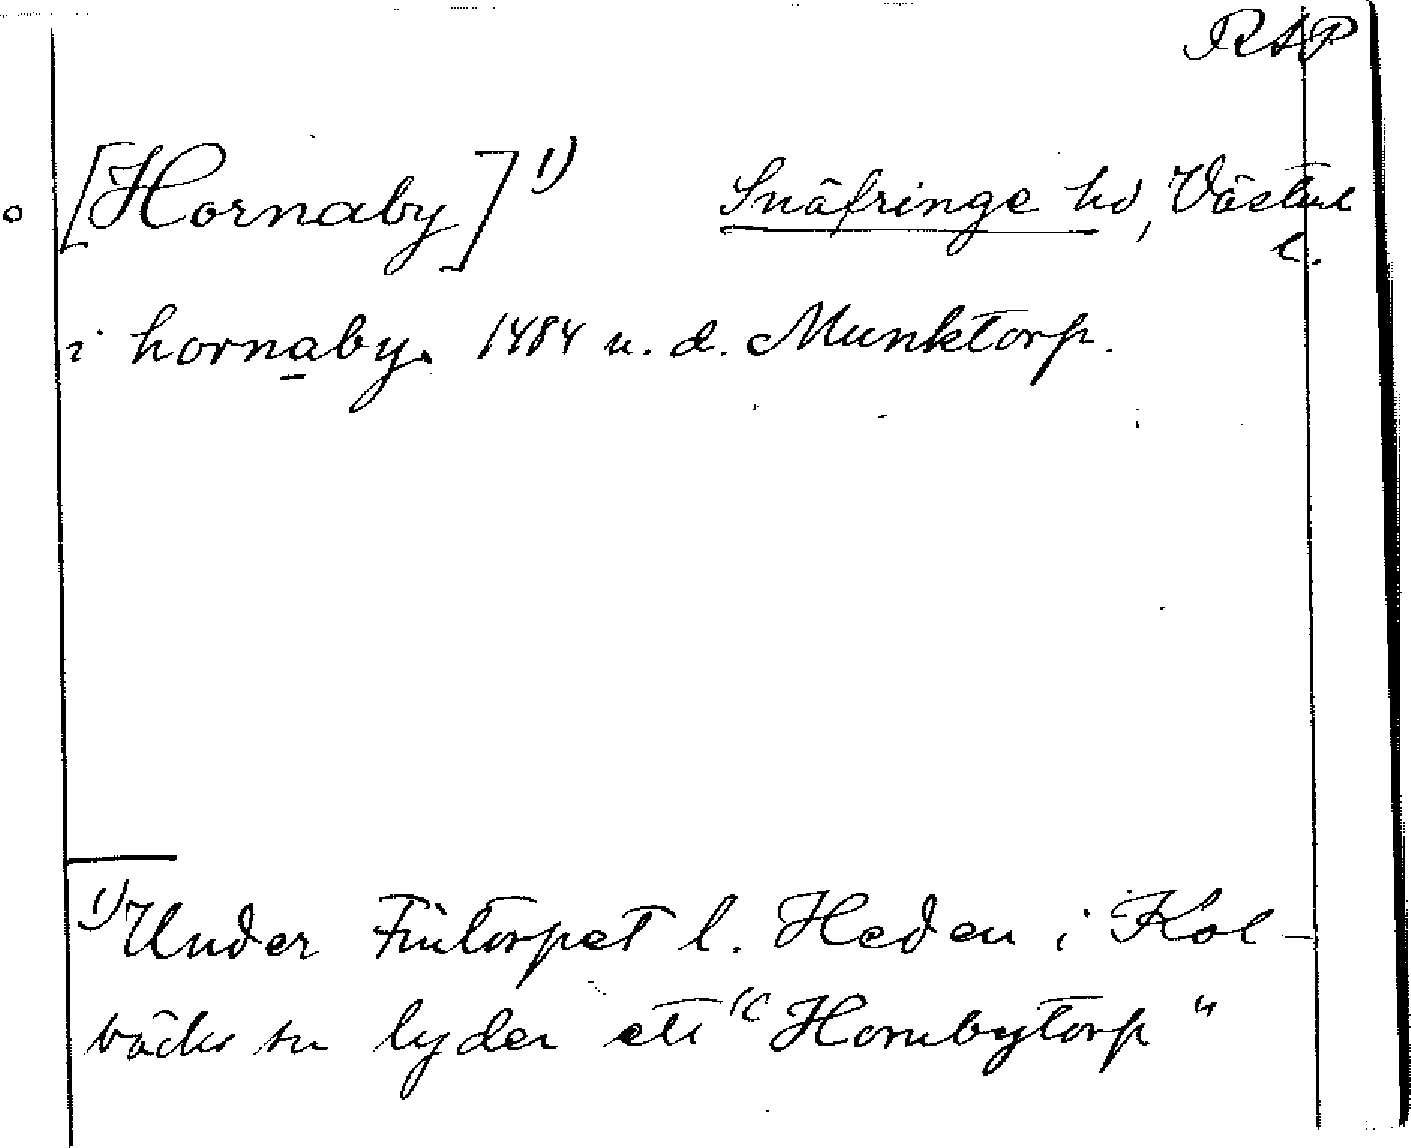 RAP
[Hornaby]¹⁾ Snäfringe hd, Västml
l.
i hornaby. 1484 u. d. Munktorp.
¹⁾ Under Fintorpet l. Heden i Kol-
bäcks sn lyder ett "Hornbytorp"